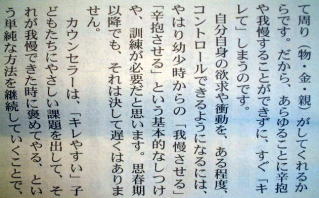 て周り（物・金・親）がしてくれるか
らです。だから、あらゆることに辛抱
や我慢することができずに、すぐ「キ
レて」しまうのです。
自分自身の欲求や衝動を、ある程度、
コントロールできるようになるには、
やはり幼少時からの「我慢させる」
「辛抱させる」という基本的なしつけ
や、訓練が必要だと思います。思春期
以降でも、それは決して遅くはありま
せん。
カウンセラーは、「キレやすい」子
どもたちにやさしい課題を出して、そ
れが我慢できた時に褒めてやる、とい
う単純な方法を継続していくことで、